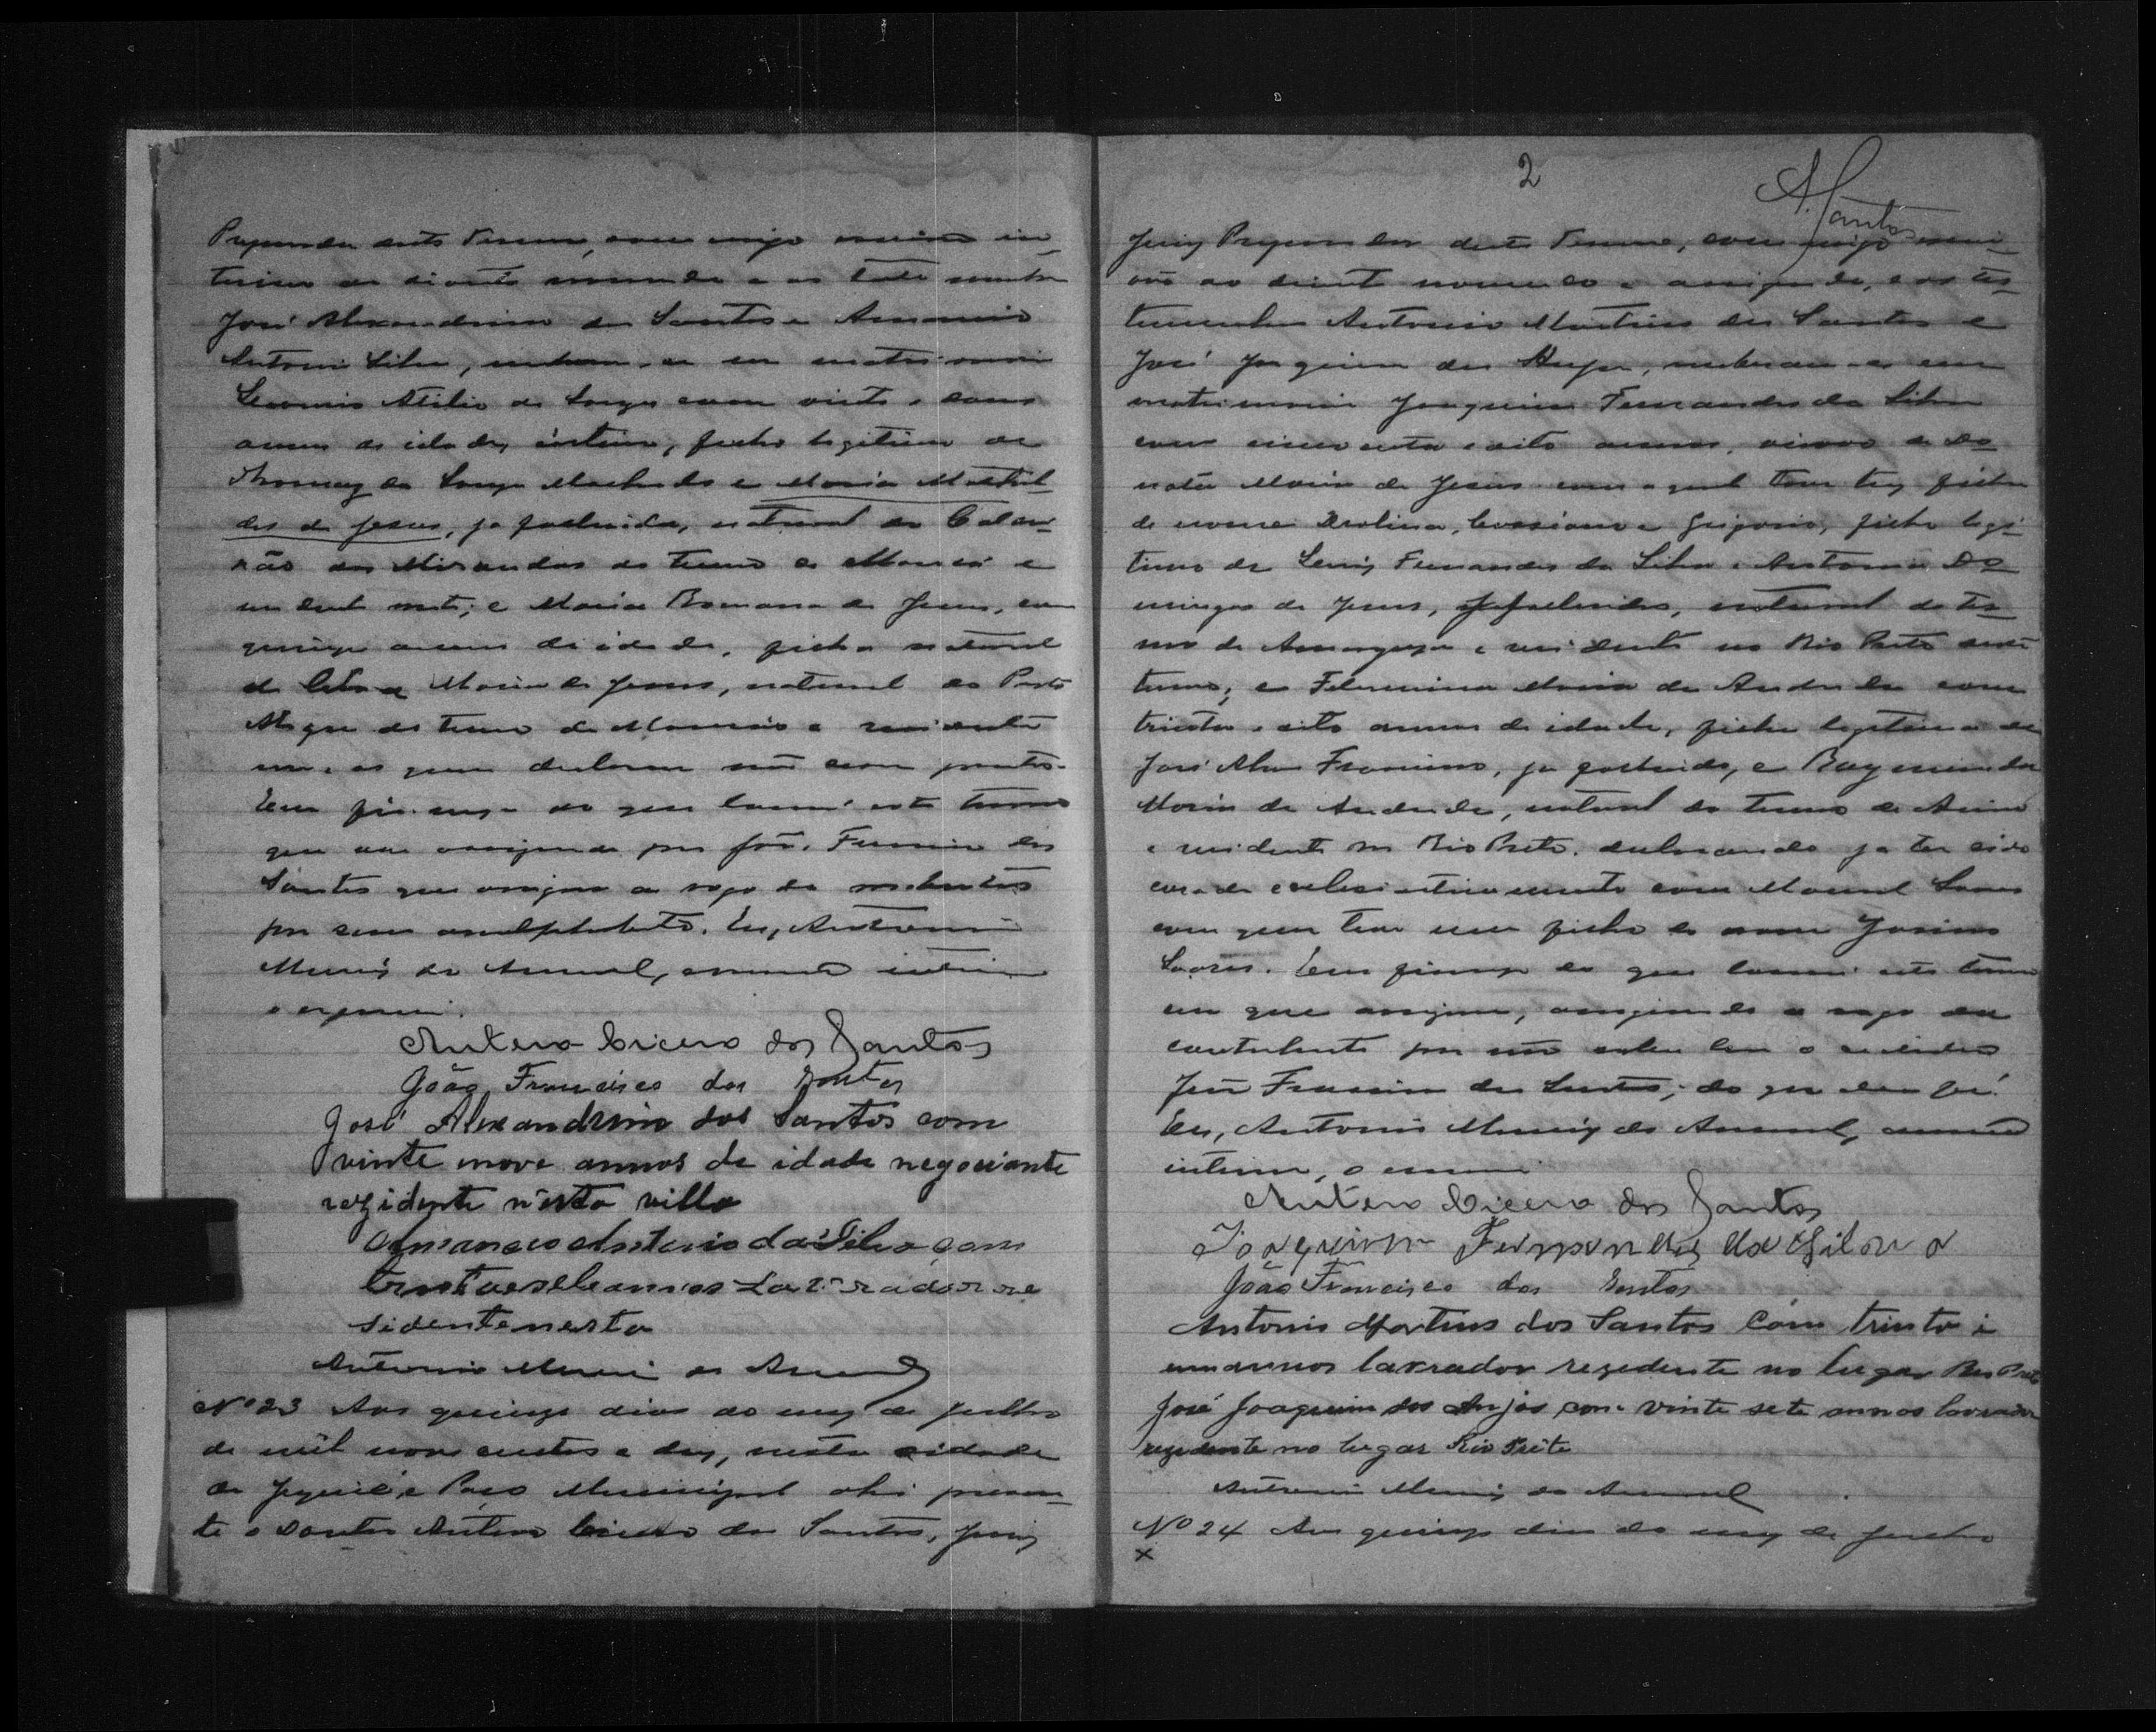 Preparador deste Termo, com migo
e as
José Alexandrino dos Santos e Amancio
Antonio Silva, em matrimonio
Leoncio Atilio de Souza com vinte e
annos de idade, filho legitimo de
Thomaz de Souza Machado e Maria Mathil-
des de Jesus, ja fallecida, natural do
dos Mirandas do termo de e
e Maria Romana de Jesus, com
quinze annos de idade, filha natural
de Maria de Jesus, natural de Porto
Alegre do termo de Maracás e residente
os quaes declaram não serem parentes.
Em firmeza do que lavrei este termo
que vae assignado por João Francisco dos
Santos que assigna a rogo dos
por serem analphabetos. Eu, Antonio
Muniz do Amaral, interino
o escrevi.
Antero Cicero dos Santos
João Francisco dos Santos
José Alexandrino dos Santos com
vinte nove annos de idade negociante
rezidente nesta villa
Amancio Antonio da Silva com
annos Lavrador re
sidente nesta
Antonio Muniz do Amaral
Nº 23 Aos quinze dias do mez de Julho
de mil nove centos e dez, nesta cidade
de Jequié e Paço Municipal ahi presen-
te o Doutor Antero Cicero dos Santos, Juiz
2
A. Santos
Juiz Preparador deste Termo, com migo escri-
vão ao diante nomeado e assignado, e as tes-
temunhas Antonio Martins dos Santos e
José Joaquim dos Anjos, receberam-se em
matrimonio Joaquim Fernandes da Silva
com cincoenta e oito annos, viuvo de Do-
nata Maria de Jesus com a qual tem tres filhos
de nome Cassiano e Grigorio, filho legi-
timo de Luiz Fernandes da Silva e Antonia Do-
mingas de Jesus, ja fallecidos, natural do ter-
mo de Amargosa e residente no Rio Preto deste
termo; e Felismina Maria de Andrade com
trinta e oito annos de idade, filha legitima de
José Alves Francisco, ja fallecido, e Raymunda
Maria de Andrade, natural do termo de Areia
e residente no Rio Preto, declarando ja ter sido
casada ecclesiasticamente com Manoel Soares
com quem tem um filho de nome Josino
Soares. Em firmeza do que lavrei este termo
em que assignam, assignando a rogo da
contrahente por não saber ler o cidadão
João Francisco dos Santos; do que dou fé.
Eu, Antonio Muniz do Amaral, escrivão
interino, o escrevi
Antero Cicero dos Santos
Joaquim Fernandes da Silva
João Francisco dos Santos
Antonio Martins dos Santos com trinta i
um annos lavrador rezedente no lugar Rio Preto
José Joaquim dos Anjos com vinte sete annos lavrador
rezedente no lugar Rio Preto
Antonio Muniz do Amaral
Nº 24 Aos quinze dias do mez de Julho
x